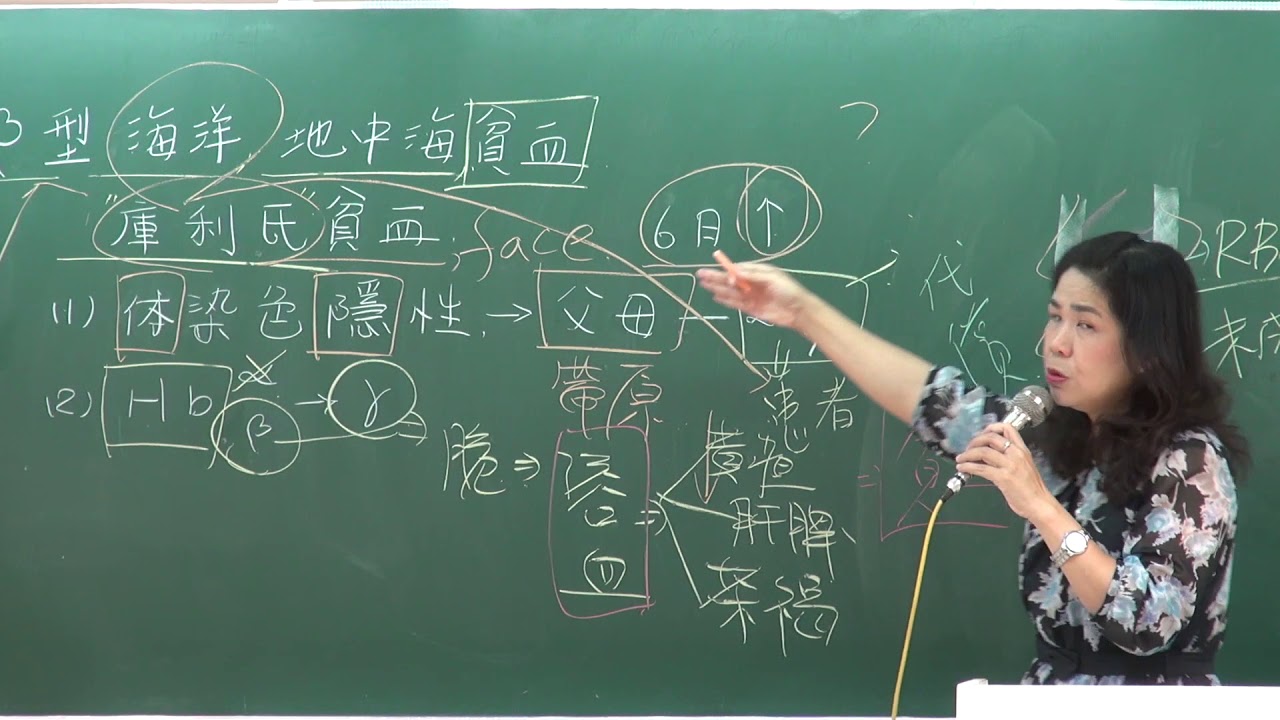 型 海洋 地中海貧血
"庫利氏"貧血, face. 6月↑
(1) 体染色隱性 → 父母
帶原 患者
(2) Hb α β → γ
脆 ⇒ 溶血 ⇒ 黃疸
肝脾
茶褐
代
RB
未